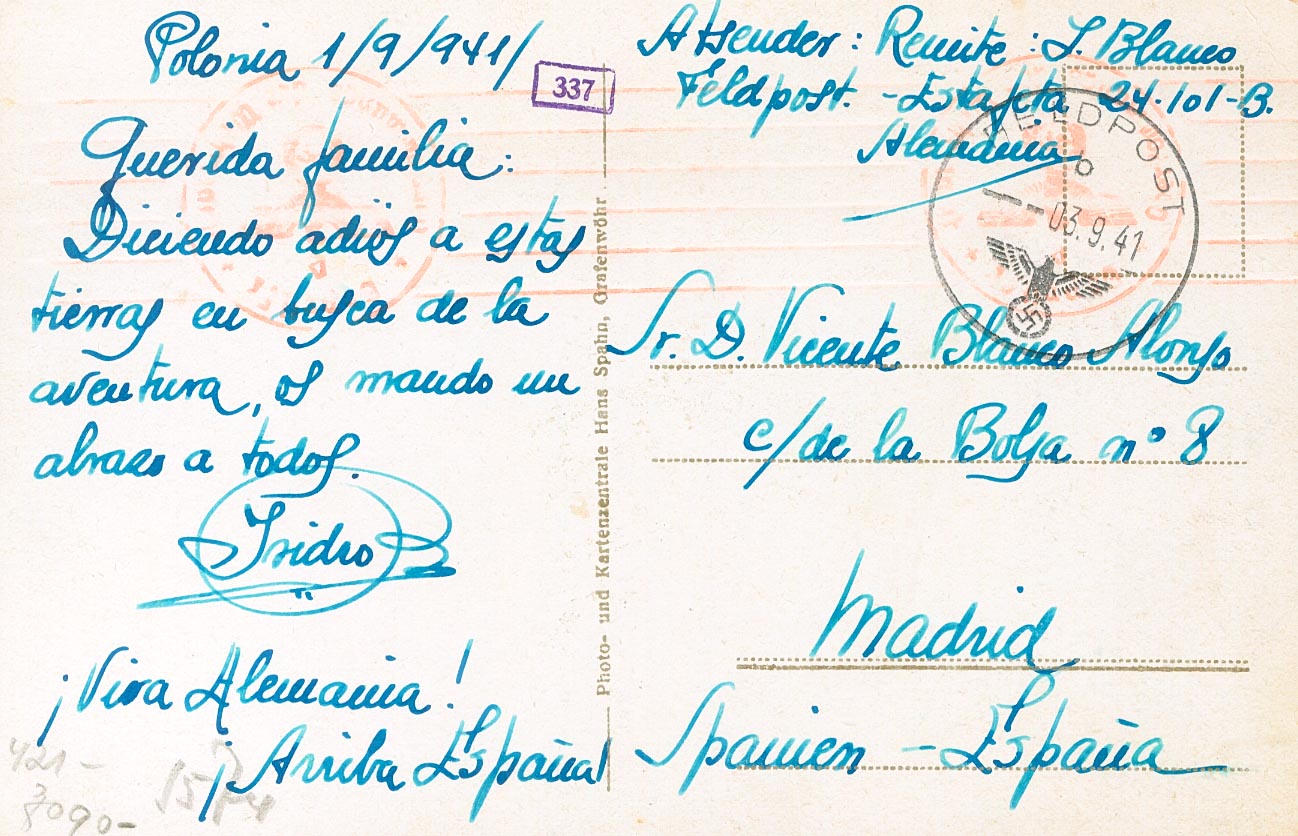 Polonia 1/9/941/
337
Querida familia:
Diciendo adios a estas
tierras en busca de la
aventura, os mando un
abrazo a todos.
Isidro
¡Viva Alemania!
¡Arriba España!
421-
8090-
Photo- und Kartenzentrale Hans Spahn, Grafenwöhr.
Absender: Remite: I. Blanco
Feldpost. - Estafeta 24·101-B.
Alemania
FELDPOST
b
03.9.41
Sr. D. Vicente Blanco Alonso
c/ de la Bolsa nº 8
Madrid
Spanien - España